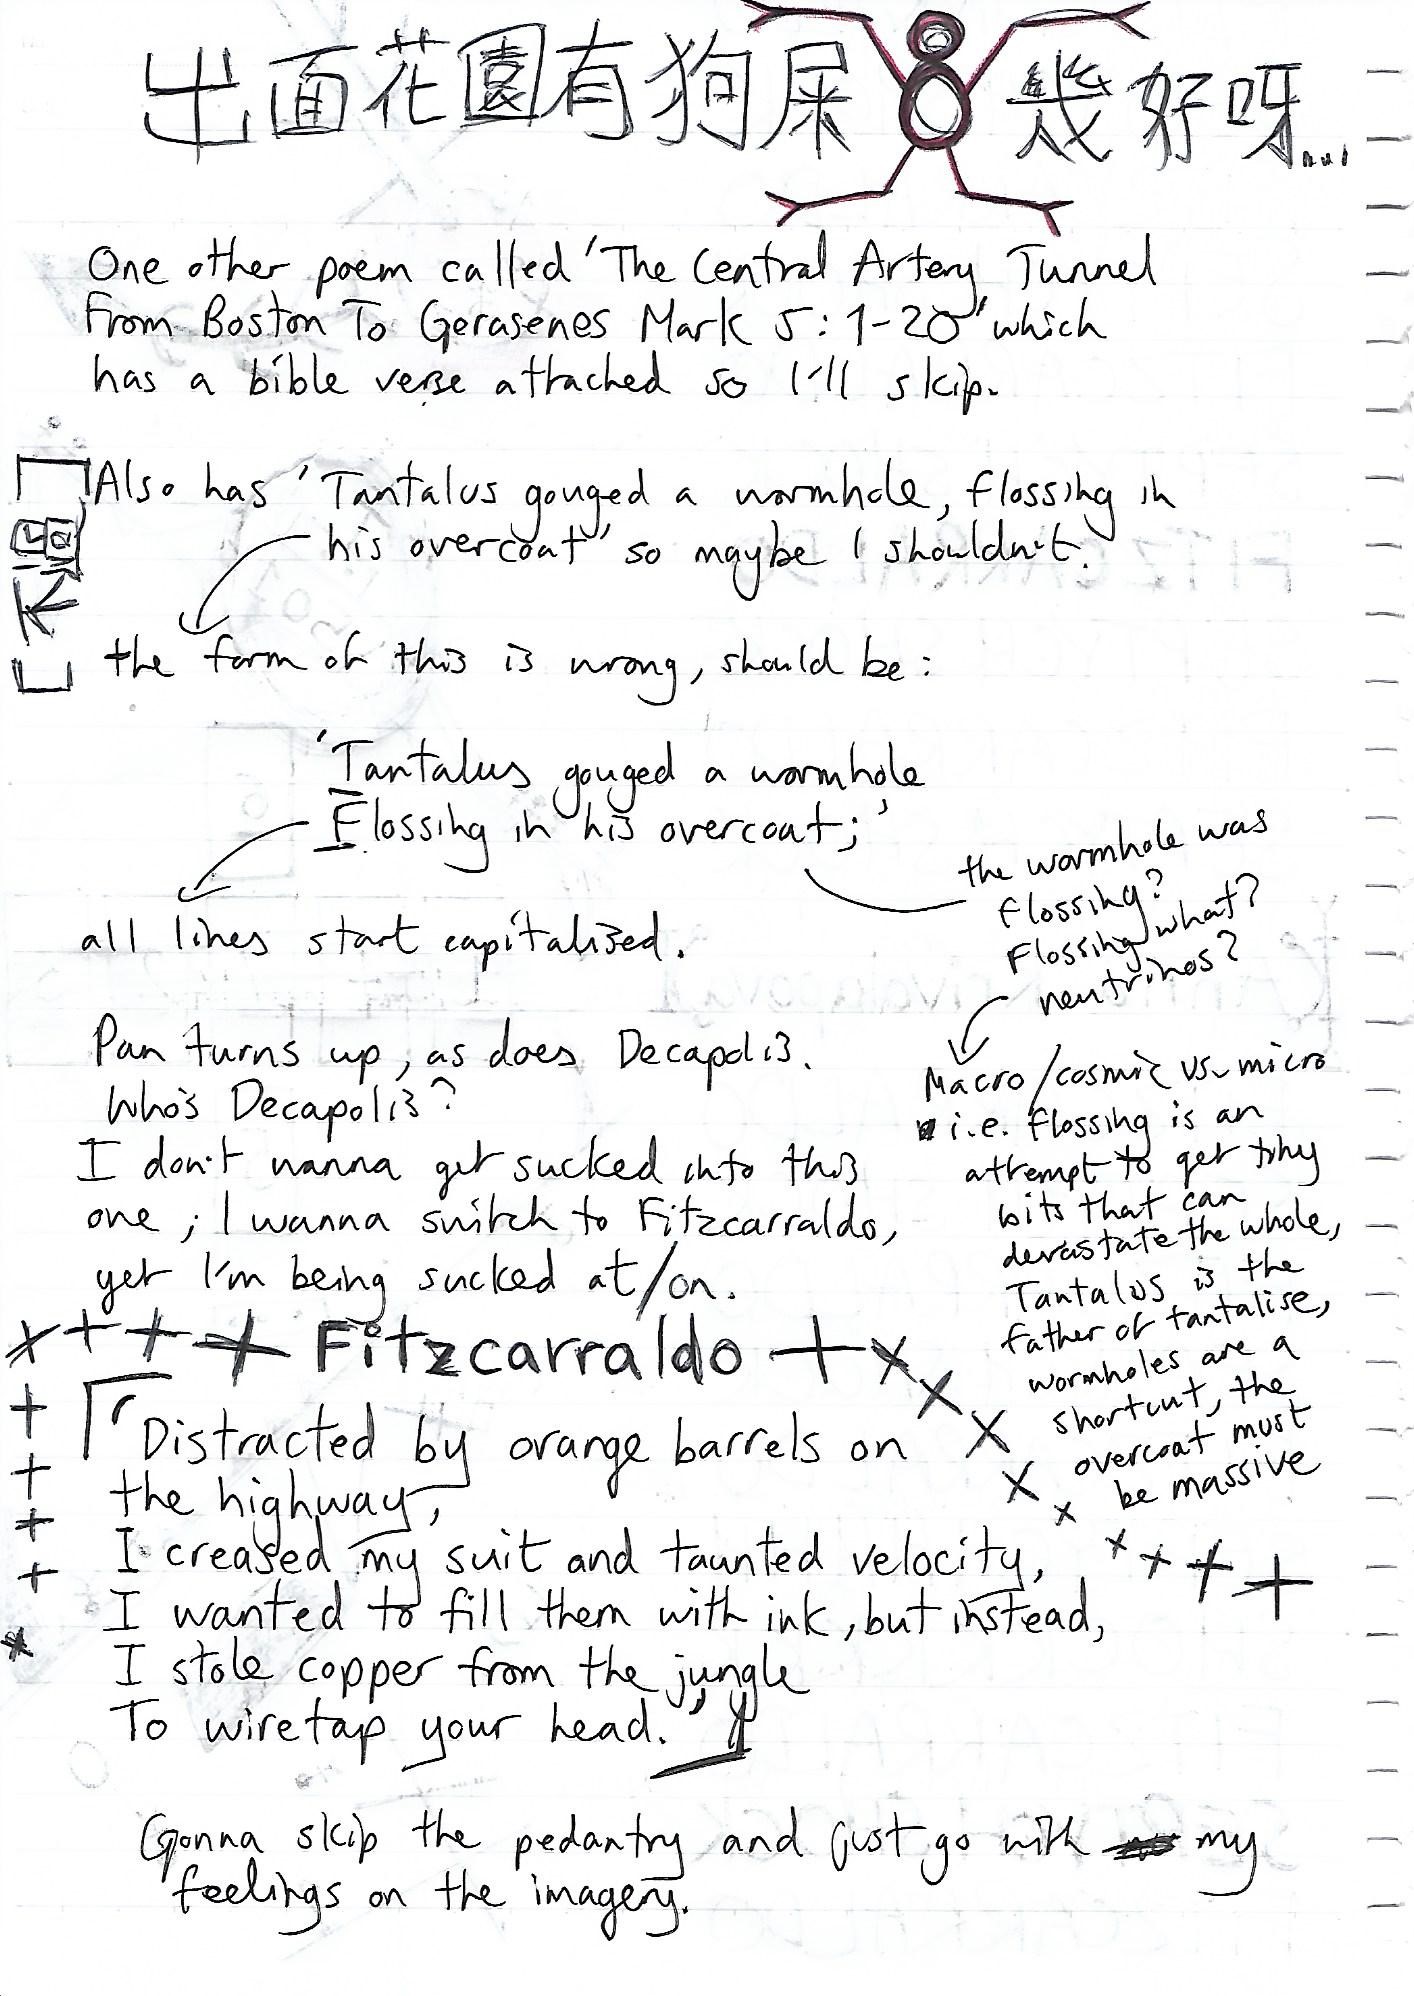 出面花園有狗屎 幾好呀...
One other poem called 'The Central Artery Tunnel
From Boston To Gerasenes Mark 5:1-20' which
has a bible verse attached so I'll skip.
Also has 'Tantalus gouged a wormhole, flossing in
his overcoat' so maybe I shouldn't.
the form of this is wrong, should be:
'Tantalus gouged a wormhole
Flossing in his overcoat;'
all lines start capitalised.
the wormhole was
flossing?
Flossing what?
neutrinos?
Macro/cosmic vs. micro
i.e. flossing is an
attempt to get tiny
bits that can
devastate the whole,
Tantalus is the
father of tantalise,
wormholes are a
shortcut, the
overcoat must
be massive
Pan turns up, as does Decapolis.
Who's Decapolis?
I don't wanna get sucked into this
one; I wanna switch to Fitzcarraldo,
yet I'm being sucked at/on.
Fitzcarraldo
'Distracted by orange barrels on
the highway,
I creased my suit and taunted velocity,
I wanted to fill them with ink, but instead,
I stole copper from the jungle
To wiretap your head.'
Gonna skip the pedantry and just go with my
feelings on the imagery.